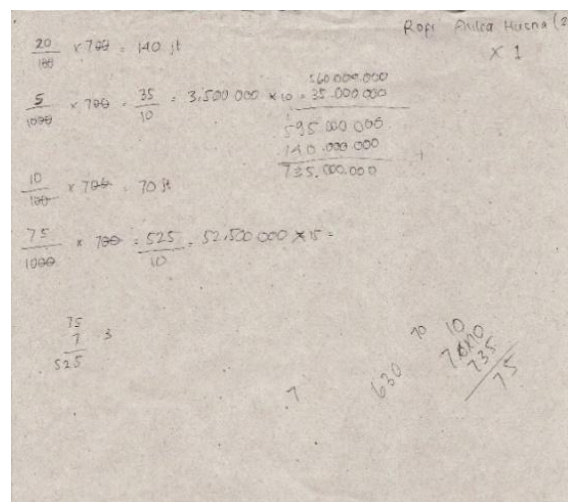 Ropi Aulea Husna (2
X 1
20/100 x 700 = 140 jt
5/1000 x 700 = 35/10 = 3.500 000 x 10 = 35.000 000
560.000.000
595 000 000
140.000.000 +
735.000.000
10/100 x 700 = 70 jt
75/1000 x 700 = 525/10 = 52.500 000 x 15 =
75
7 3
525
.7
630
70
10
735
75